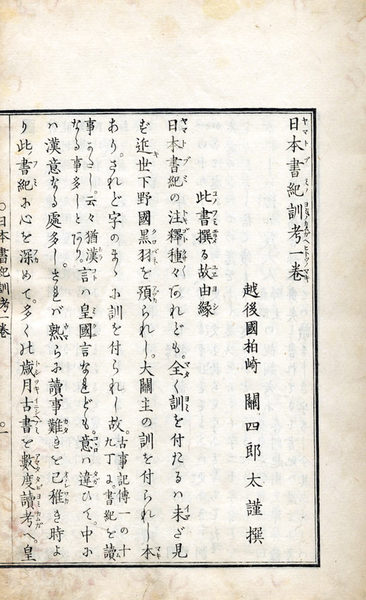 日本書紀訓考一卷
越後國柏崎 關四郎太謹撰
此書撰る故由縁
日本書紀の注釋種々あれども。全く訓を付たるハ未だ見
ず近世下野國黒羽を預られし。大關主の訓を付られし本
あり。されど字のまゝに訓を付られし故。古事記傳一の十九丁に。書紀を讀
事かたし。云々猶漢なる事多しとあり。言ハ皇國言なれども。意ハ違ひて。中に
ハ漢意なる處多し。されバ熟らに讀事難きを己稚き時よ
り此書紀に心を深めて。多くの歳月古書を數度讀考へ皇
〇日本書紀訓考一卷 〇一